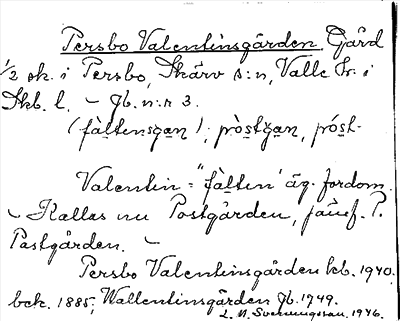 Persbo Valentinsgården Gård
1/2 sk. i Persbo, Skärv s:n, Valle hr. i
Skb. l. – Jb. n:r 3.
(fàltensgan); pròstgan, próst-
Valentin = "fàlten" äg. fordom.
– Kallas nu Postgården, jämf. P.
Pastgården. –
Persbo Valentinsgården kb. 1940.
bek. 1885; Wallentinsgården Jb. 1749.
L. M. 1946.